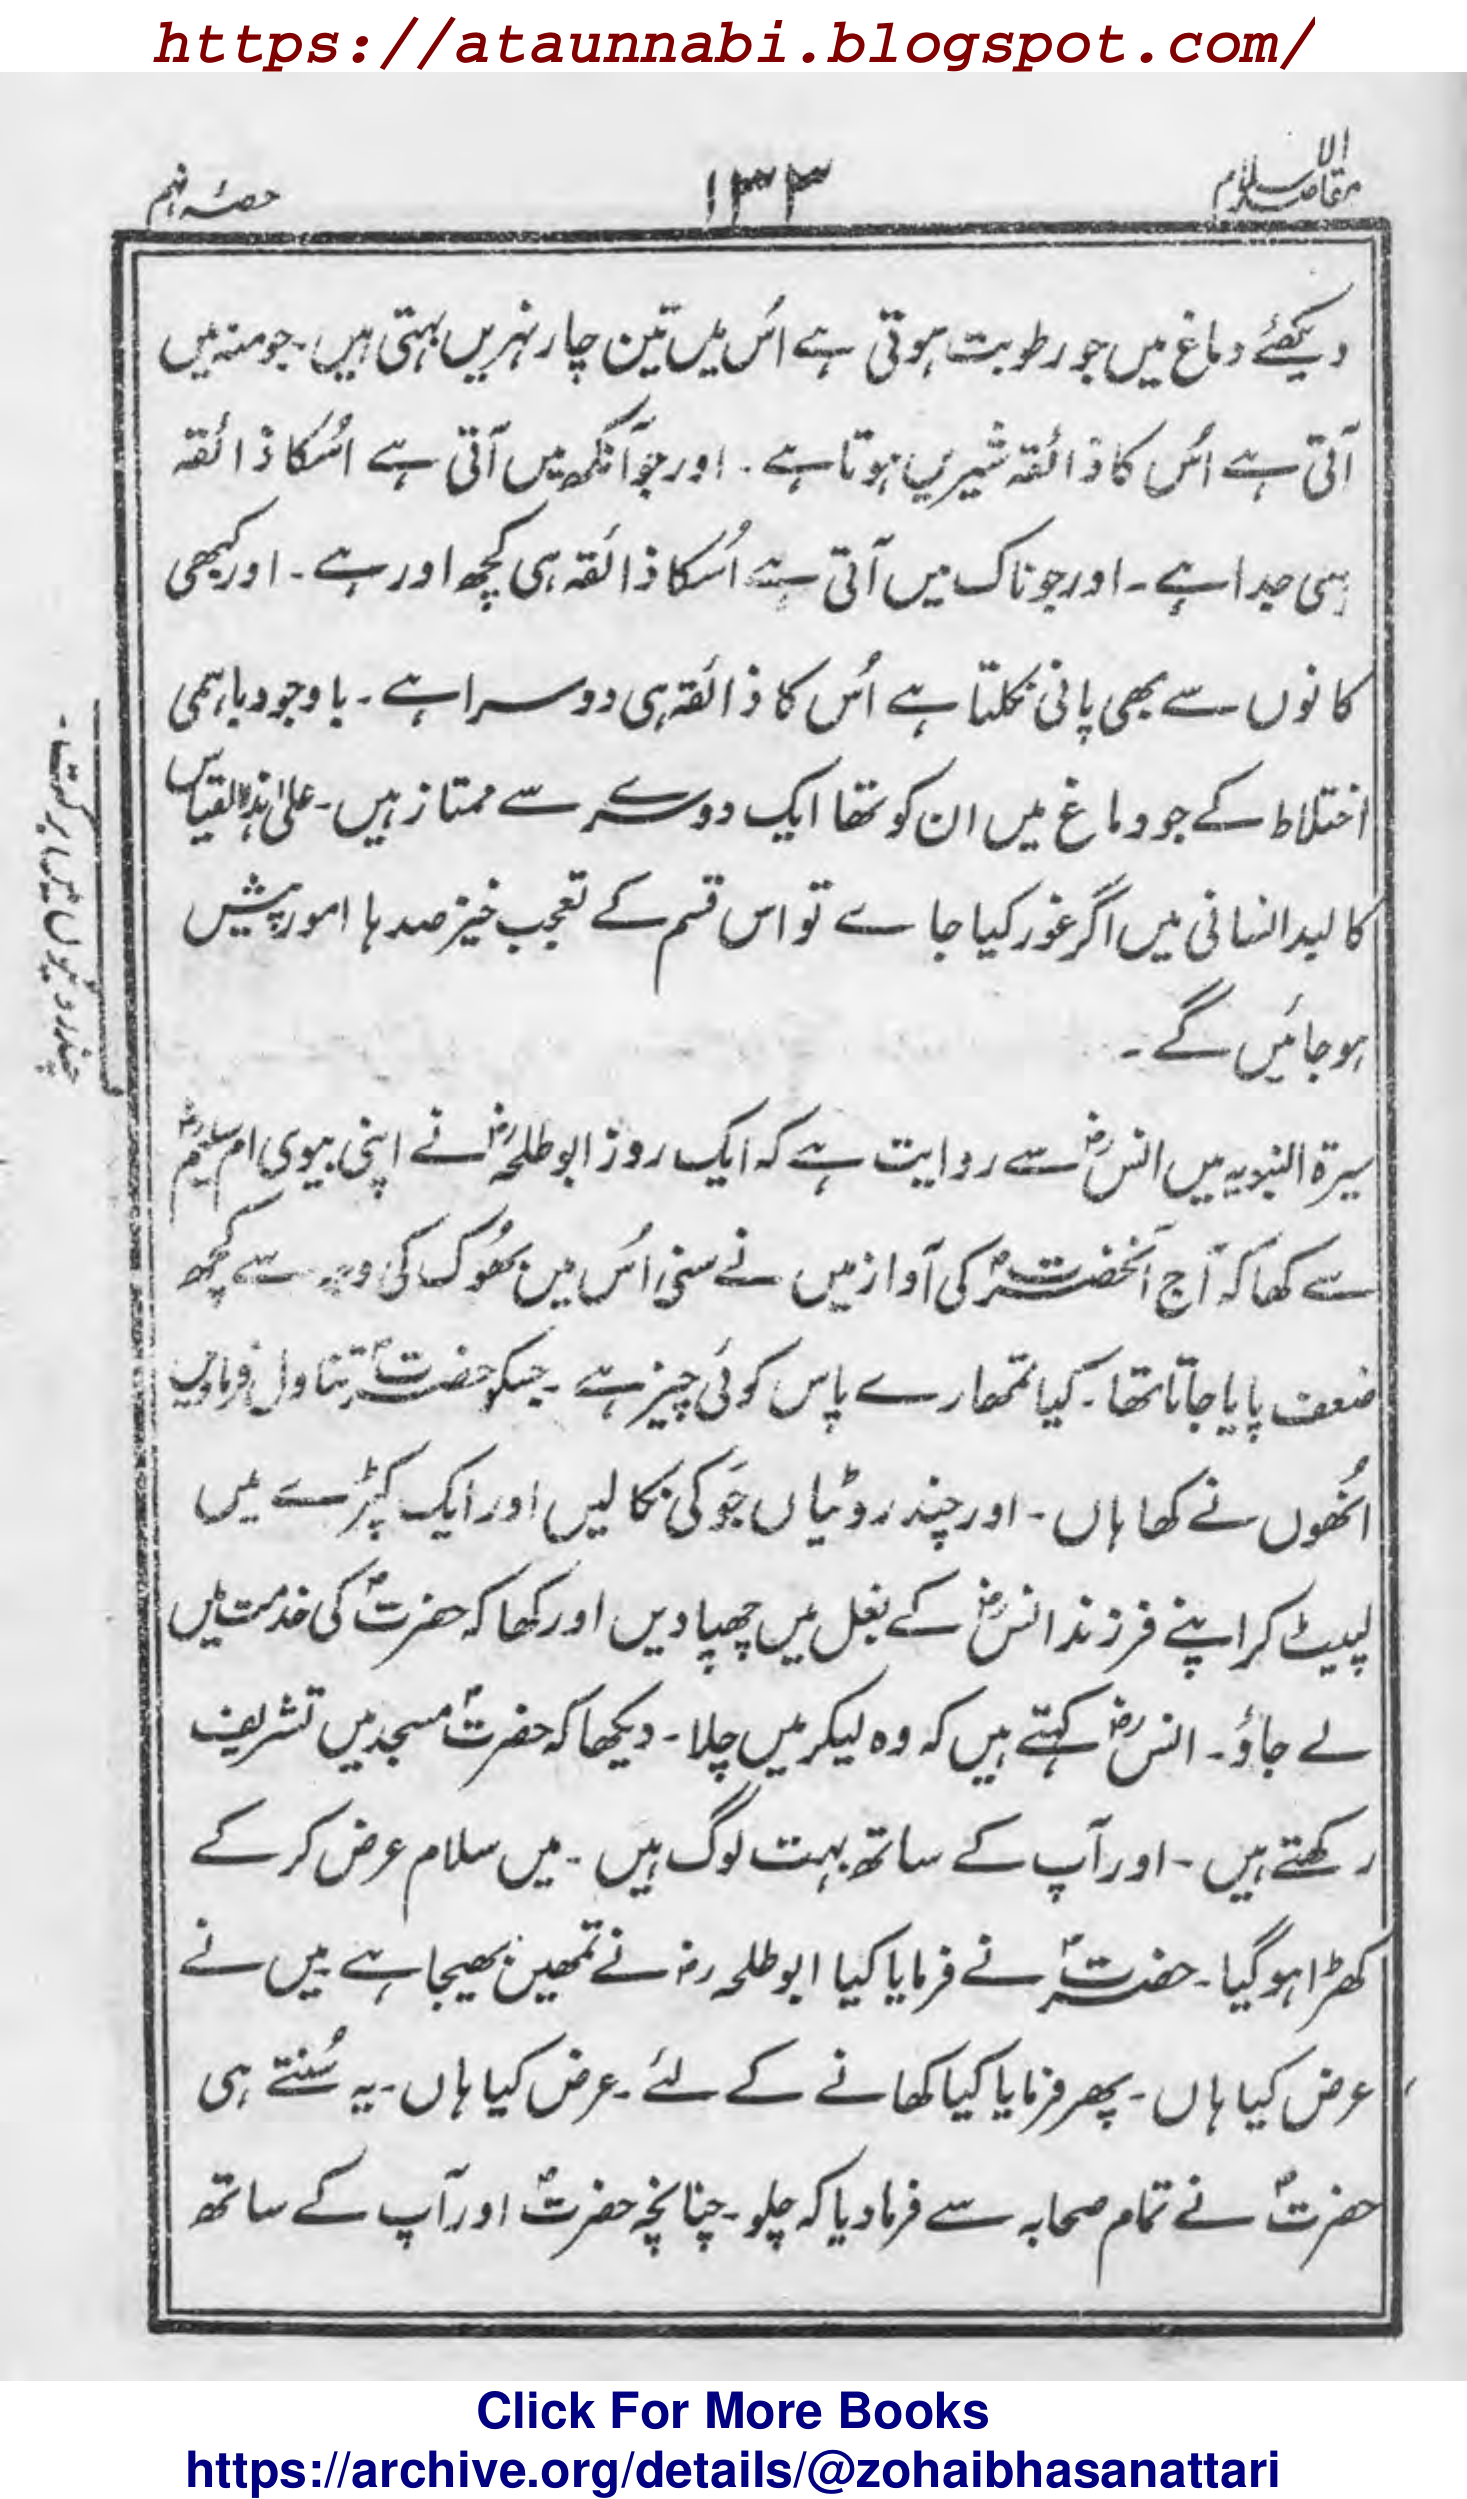 https://ataunnabi.blogspot.com/
مقاصد الاسلام
۱۳۳
حصۂ نہم
دیکھئے دماغ میں جو رطوبت ہوتی ہے اُس میں تین چار نہریں بہتی ہیں۔ جو منہ میں
آتی ہے اُس کا ذائقہ شیریں ہوتا ہے۔ اور جو آنکھ میں آتی ہے اُسکا ذائقہ
ہی جدا ہے۔ اور جو ناک میں آتی ہے اُسکا ذائقہ ہی کچھ اور ہے۔ اور کبھی
کانوں سے بھی پانی نکلتا ہے اُس کا ذائقہ ہی دوسرا ہے۔ باوجود باہمی
اختلاط کے جو دماغ میں ان کو تھا ایک دوسرے سے ممتاز ہیں۔ علیٰ ہذا القیاس
کالبد انسانی میں اگر غور کیا جاے تو اس قسم کے تعجب خیز صدہا امور پیش
ہوجائیں گے۔
چند روٹیوں میں برکت۔
سیرۃ النبویہ میں انسؓ سے روایت ہے کہ ایک روز ابوطلحہؓ نے اپنی بیوی ام سلیمؓ
سے کھا کہ آج آنحضرتؐ کی آواز میں نے سنی اُس میں بھُوک کی وجہ سے کچھ
ضعف پایا جاتا تھا۔ کیا تمھارے پاس کوئی چیز ہے۔ جسکو حضرتؐ تناول فرماویں
اُنھوں نے کھا ہاں۔ اور چند روٹیاں جَو کی نکالیں اور ایک کپڑے میں
لپیٹ کر اپنے فرزند انسؓ کے بغل میں چھپا دیں اور کھا کہ حضرتؐ کی خدمت میں
لے جاؤ۔ انسؓ کہتے ہیں کہ وہ لیکر میں چلا۔ دیکھا کہ حضرتؐ مسجد میں تشریف
رکھتے ہیں۔ اور آپ کے ساتھ بہت لوگ ہیں۔ میں سلام عرض کر کے
کھڑا ہوگیا۔ حضرتؐ نے فرمایا کیا ابوطلحہ رضہ نے تمھیں بھیجا ہے میں نے
عرض کیا ہاں۔ پھر فرمایا کیا کھانے کے لئے۔ عرض کیا ہاں۔ یہ سُنتے ہی
حضرتؐ نے تمام صحابہ سے فرمادیا کہ چلو۔ چنانچہ حضرتؐ اور آپ کے ساتھ
Click For More Books
https://archive.org/details/@zohaibhasanattari